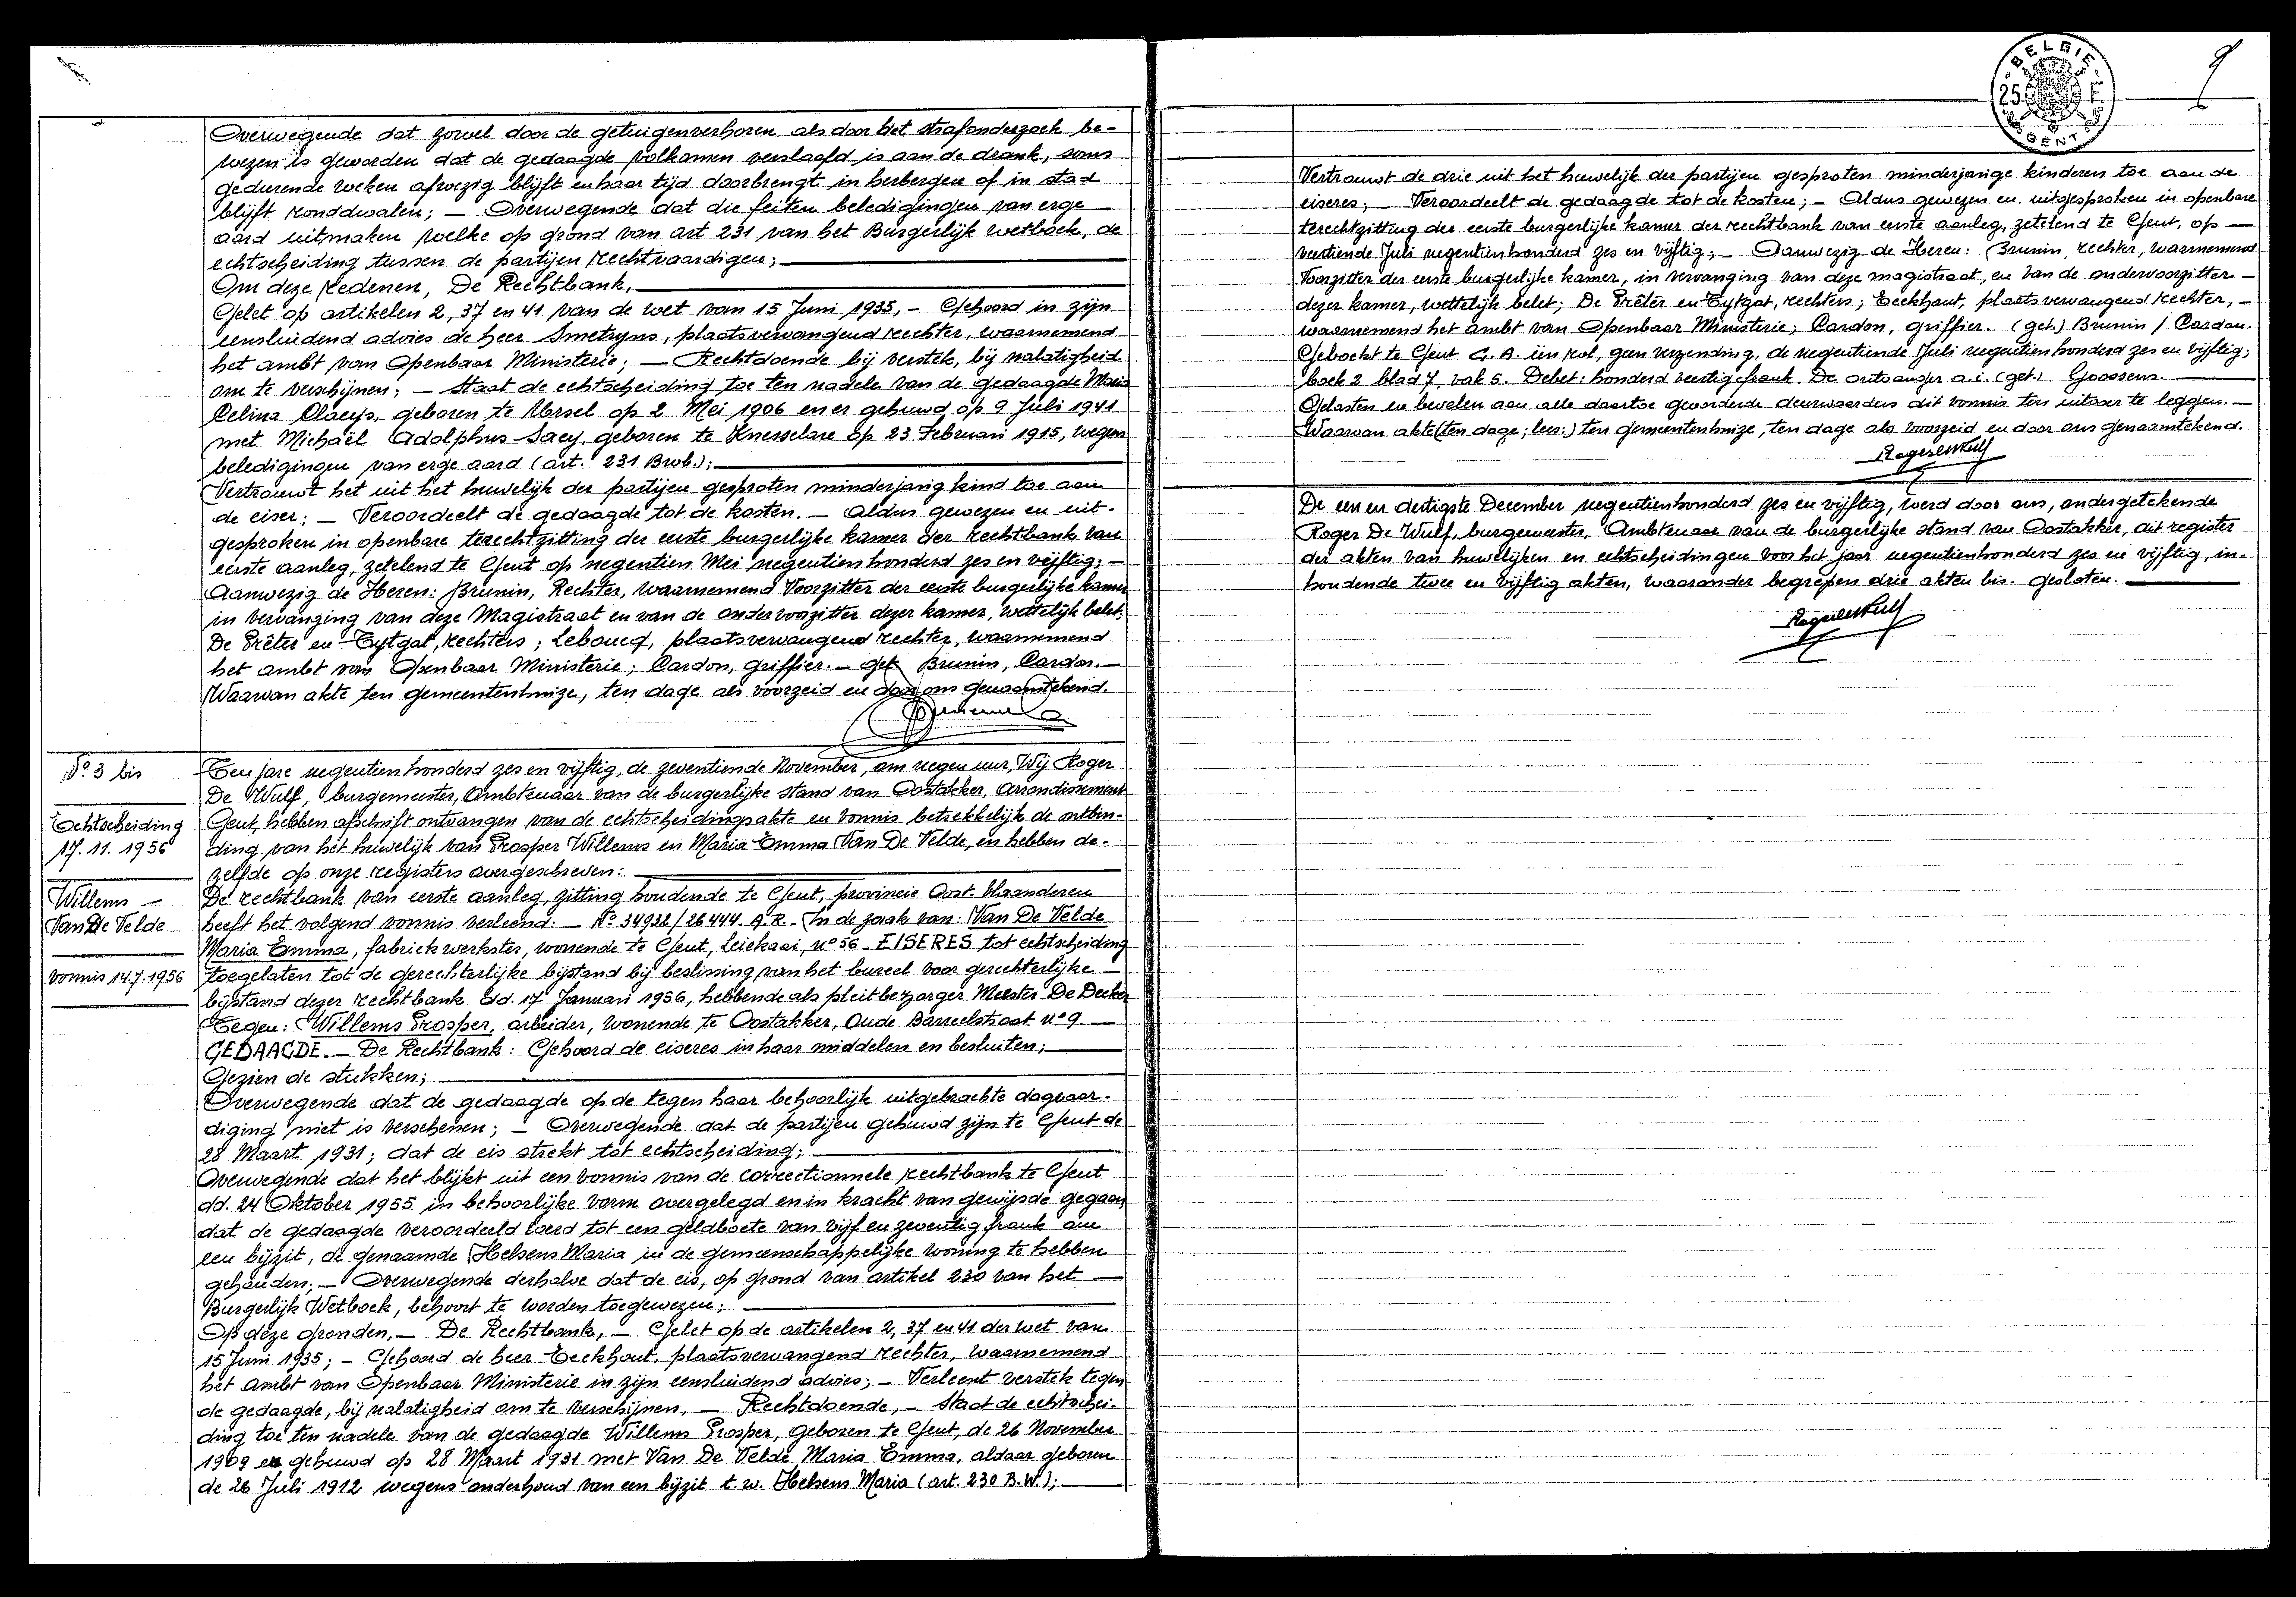 Overwegende dat zowel door de getuigenverhoren als door het strafonderzoek be-
wezen is geworden dat de gedaagde volkomen verslaafd is aan de drank, soms
gedurende weken afwezig blijft en haar tijd doorbrengt in herbergen of in stad
blijft ronddwalen; — Overwegende dat die feiten beledigingen van erge —
aard uitmaken welke op grond van art 231 van het Burgerlijk wetboek, de
echtscheiding tussen de partijen rechtvaardigen;
Om deze redenen, De Rechtbank,
Gelet op artikelen 2, 37 en 41 van de wet van 15 Juni 1935, — Gehoord in zijn
eensluidend advies de heer Smetryns, plaatsvervangend rechter, waarnemend
het ambt van Openbaar Ministerie; — Rechtdoende bij verstek, bij nalatigheid
om te verschijnen; — Staat de echtscheiding toe ten nadele van de gedaagde Maria
Celina Claeys, geboren te Ursel op 2 Mei 1906 en er gehuwd op 9 Juli 1941
met Michaël Adolphus Saey, geboren te Knesselare op 23 Februari 1915, wegens
beledigingen van erge aard (art. 231 Bwb.);
Vertrouwt het uit het huwelijk der partijen gesproten minderjarig kind toe aan
de eiser; — Veroordeelt de gedaagde tot de kosten. — Aldus gewezen en uit-
gesproken in openbare terechtzitting der eerste burgerlijke kamer der rechtbank van
eerste aanleg, zetelend te Gent op negentien Mei negentienhonderd zes en vijftig; —
Aanwezig de Heren: Brunin, Rechter, waarnemend Voorzitter der eerste burgerlijke kamer
in vervanging van deze Magistraat en van de ondervoorzitter dezer kamer, wettelijk belet;
De Prêter en Tytgat, rechters; Leboucq, plaatsvervangend rechter, waarnemend
het ambt van Openbaar Ministerie; Cardon, griffier. — get. Brunin, Cardon. —
Waarvan akte ten gemeentenhuize, ten dage als voorzeid en door ons genaamtekend.
No 3 bis
Echtscheiding
17. 11. 1956
Willems —
Van De Velde
vonnis 14.7.1956
Ten jare negentienhonderd zes en vijftig, de zeventiende November, om negen uur, Wij Roger
De Wulf, burgemeester, Ambtenaar van de burgerlijke stand van Oostakker, Arrondissement
Gent, hebben afschrift ontvangen van de echtscheidingsakte en vonnis betrekkelijk de ontbin-
ding van het huwelijk van Prosper Willems en Maria Emma Van De Velde, en hebben de-
zelfde op onze registers overgeschreven:
De rechtbank van eerste aanleg, zitting houdende te Gent, provincie Oost-Vlaanderen
heeft het volgend vonnis verleend: — No 34932/26444 A.R. — In de zaak van: Van De Velde
Maria Emma, fabriekwerkster, wonende te Gent, Leiekaai, no 56 — EISERES tot echtscheiding
toegelaten tot de gerechterlijke bijstand bij beslissing van het bureel voor gerechterlijke —
bijstand dezer rechtbank dd. 17 Januari 1956, hebbende als pleitbezorger Meester De Decker
Tegen: Willems Prosper, arbeider, wonende te Oostakker, Oude Barreelstraat no 9. —
GEDAAGDE. — De Rechtbank: Gehoord de eiseres in haar middelen en besluiten;
Gezien de stukken;
Overwegende dat de gedaagde op de tegen haar behoorlijk uitgebrachte dagvaar-
diging niet is verschenen; — Overwegende dat de partijen gehuwd zijn te Gent de
28 Maart 1931; dat de eis strekt tot echtscheiding;
Overwegende dat het blijkt uit een vonnis van de correctionnele rechtbank te Gent
dd. 24 Oktober 1955 in behoorlijke vorm overgelegd en in kracht van gewijsde gegaan
dat de gedaagde veroordeeld werd tot een geldboete van vijf en zeventig frank om
een bijzit, de genaamde Helsens Maria in de gemeenschappelijke woning te hebben
gehouden; — Overwegende derhalve dat de eis, op grond van artikel 230 van het —
Burgerlijk Wetboek, behoort te worden toegewezen;
Op deze gronden, — De Rechtbank, — Gelet op de artikelen 2, 37 en 41 der wet van
15 Juni 1935; — Gehoord de heer Eeckhout, plaatsvervangend rechter, waarnemend
het ambt van Openbaar Ministerie in zijn eensluidend advies; — Verleent verstek tegen
de gedaagde, bij nalatigheid om te verschijnen, — Rechtdoende, — Staat de echtschei-
ding toe ten nadele van de gedaagde Willems Prosper, geboren te Gent, de 26 November
1909 en gehuwd op 28 Maart 1931 met Van De Velde Maria Emma, aldaar geboren
de 26 Juli 1912 wegens onderhoud van een bijzit t. w. Helsens Maria (art. 230 B.W.);
BELGIE
25 F.
GENT
9
Vertrouwt de drie uit het huwelijk der partijen gesproten minderjarige kinderen toe aan de
eiseres; — Veroordeelt de gedaagde tot de kosten; — Aldus gewezen en uitgesproken in openbare
terechtzitting der eerste burgerlijke kamer der rechtbank van eerste aanleg, zetelend te Gent, op —
veertiende Juli negentienhonderd zes en vijftig; — Aanwezig de Heren: Brunin, rechter, waarnemend
Voorzitter der eerste burgerlijke kamer, in vervanging van deze magistraat, en van de ondervoorzitter —
dezer kamer, wettelijk belet; De Prêter en Tytgat, rechters; Eeckhout, plaatsvervangend rechter, —
waarnemend het ambt van Openbaar Ministerie; Cardon, griffier. (get.) Brunin / Cardon.
Geboekt te Gent G. A. één rol, geen verzending, de negentiende Juli negentienhonderd zes en vijftig;
boek 2 blad 7 vak 5. Debet: honderd veertig frank. De ontvanger a.i. (get.) Goossens.
Gelasten en bevelen aan alle daartoe gevorderde deurwaarders dit vonnis ten uitvoer te leggen. —
Waarvan akte (ten dage; lees:) ten gemeentenhuize, ten dage als voorzeid en door ons genaamtekend.
RogerdeWulf
De een en dertigste December negentienhonderd zes en vijftig, werd door ons, ondergetekende
Roger De Wulf, burgemeester, Ambtenaar van de burgerlijke stand van Oostakker, dit register
der akten van huwelijken en echtscheidingen voor het jaar negentienhonderd zes en vijftig, in-
houdende twee en vijftig akten, waaronder begrepen drie akten bis. gesloten.
RogerdeWulf